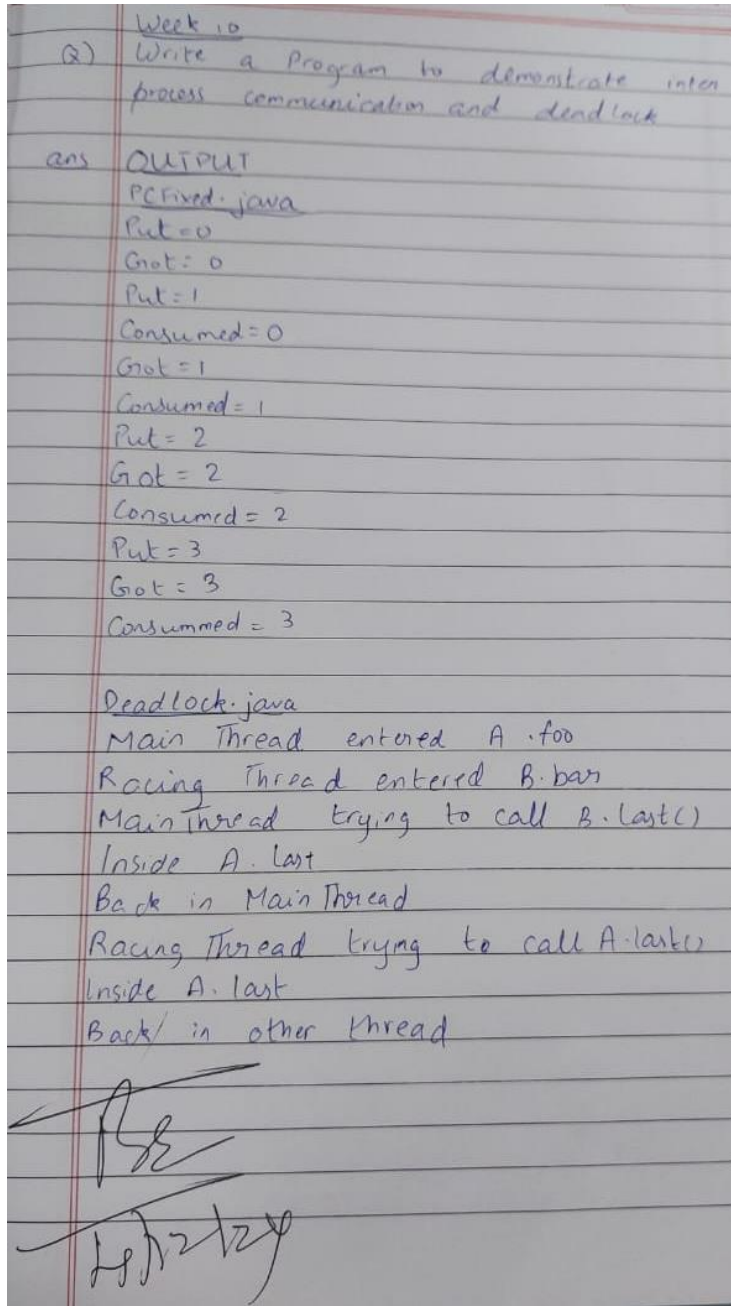 Week 10
Q) Write a Program to demonstrate inter
process communication and deadlock
ans OUTPUT
PCFixed.java
Put=0
Got: 0
Put=1
Consumed=0
Got=1
Consumed=1
Put=2
Got=2
Consumed=2
Put=3
Got=3
Consummed=3
Deadlock.java
Main Thread entered A.foo
Racing Thread entered B.bar
Main Thread trying to call B.last()
Inside A.last
Back in Main Thread
Racing Thread trying to call A.last()
Inside A.last
Back in other thread